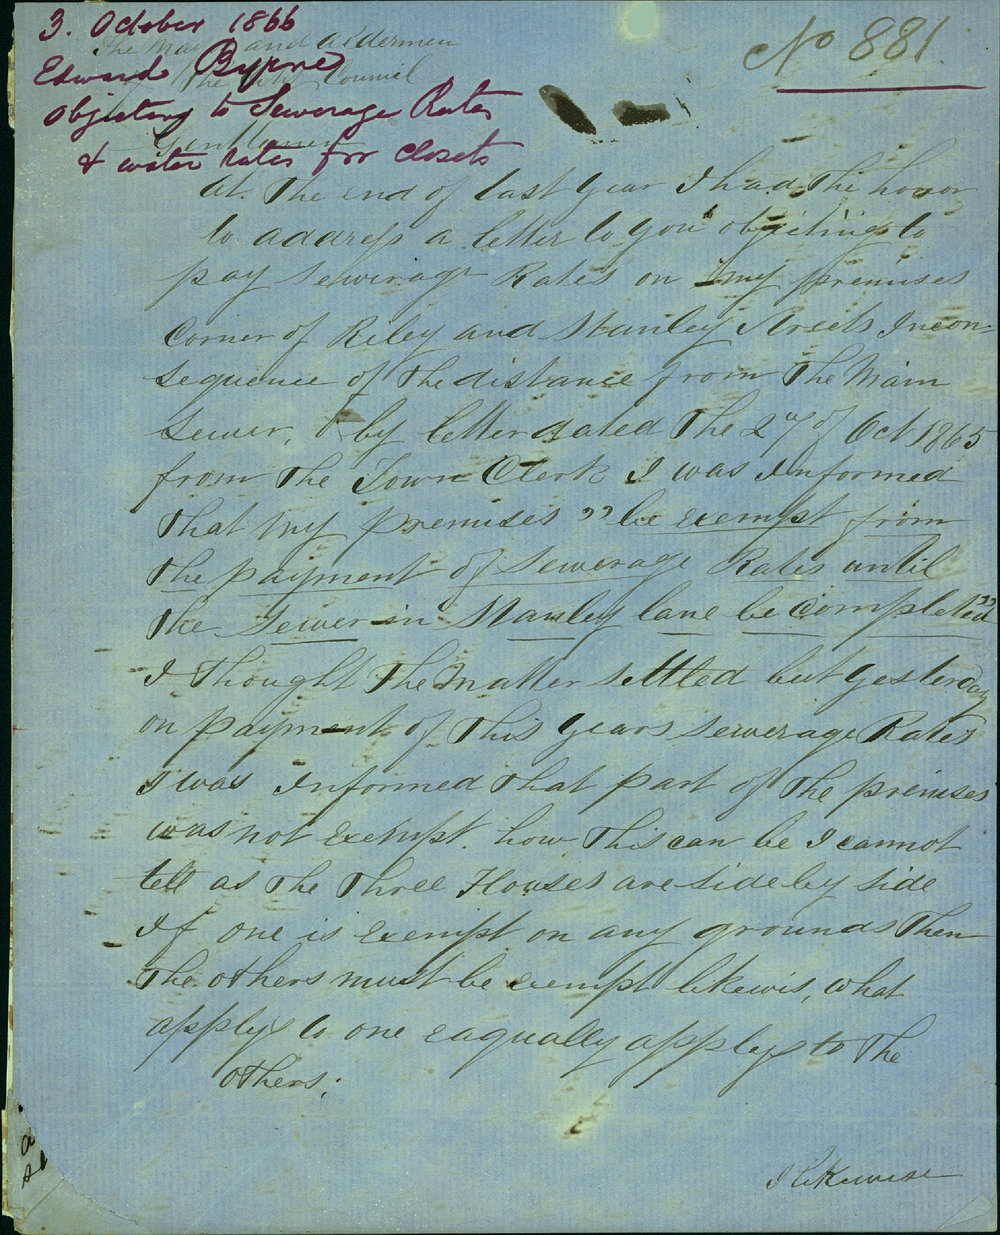 3. October 1866
Edward Byrne
objecting to Sewerage Rates
& water rates for closets
No 881.
The Mayor and Aldermen
of the City Council
Gentlemen
At The end of last year I had The honor
to address a letter to you objecting to
pay Sewerage Rates on my premises
Corner of Riley and Stanley Streets Incon
sequence of The distance from The Main
Sewer, & by letter dated The 2nd of Oct 1865
from The Town Clerk I was Informed
That my premises "be exempt from
The payment of Sewerage Rates until
The Sewer in Stanley lane be Completed"
I Thought The Matter settled but yesterday
on payment of This years Sewerage Rates
I was Informed That part of The premises
was not exempt. how This can be I cannot
tell as The Three Houses are side by side
If one is exempt on any grounds Then
The others must be exempt likewis, what
applys to one eaqually applys to The
others;
I likewise